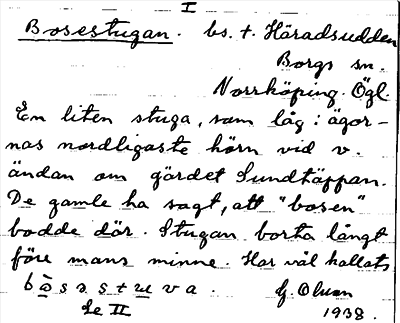 I
Bosestugan. bs. t. Häradsudden
Borgs sn.
Norrköping. Ögl.
En liten stuga, som låg i ägor-
nas nordligaste hörn vid v.
ändan om gärdet Sundtäppan.
De gamle ha sagt, att "bosen"
bodde där. Stugan borta långt
före mans minne. Har väl kallats
bosestuva.
Se II
1938.